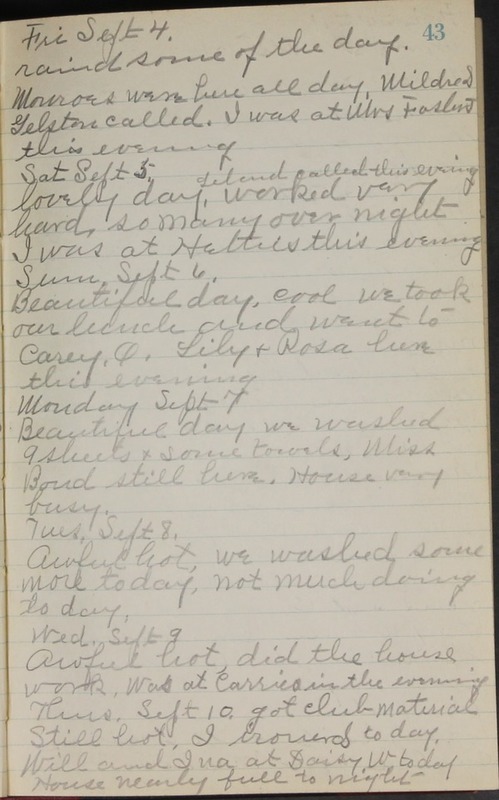 43
Fri Sept 4.
raind some of the day.
Monroes were here all day, Mildred
Gelston called. I was at Mrs Fosters
this evening
Sat Sept 5.
called this evening
lovely day, worked very
hard, so many over night
I was at Hatties this evening
Sun, Sept 6.
Beautiful day, cool we took
our lunch and went to
Carey, O. Lily + Rosa here
this evening
Monday Sept 7
Beautiful day we washed
9 sheets + some towels, Miss
Bond still here. House very
busy.
Tues. Sept 8.
Awful hot, we washed some
more today, not much doing
to day.
Wed. Sept 9
Awful hot, did the house
work, was at Carries in the evening
Thurs. Sept 10. got club material
Still hot, I ironed to day.
Will and Ina at Daisy W today
House nearly full to night